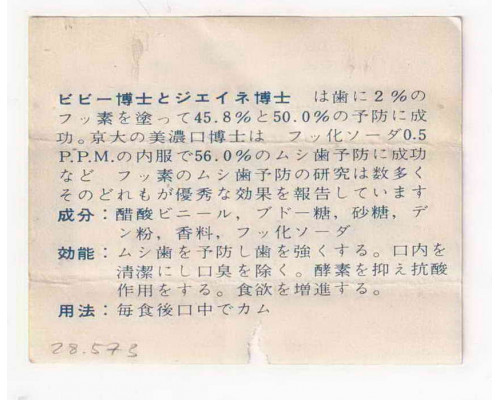 ビビー博士とジエイネ博士　は歯に2%の
フッ素を塗って45.8%と50.0%の予防に成
功。京大の美濃口博士は　フッ化ソーダ0.5
P.P.M.の内服で56.0%のムシ歯予防に成功
など　フッ素のムシ歯予防の研究は数多く
そのどれもが優秀な効果を報告しています
成分：醋酸ビニール，ブドー糖，砂糖，デ
ン粉，香料，フッ化ソーダ
効能：ムシ歯を予防し歯を強くする。口内を
清潔にし口臭を除く。酵素を抑え抗酸
作用をする。食欲を増進する。
用法：毎食後口中でカム
28.573